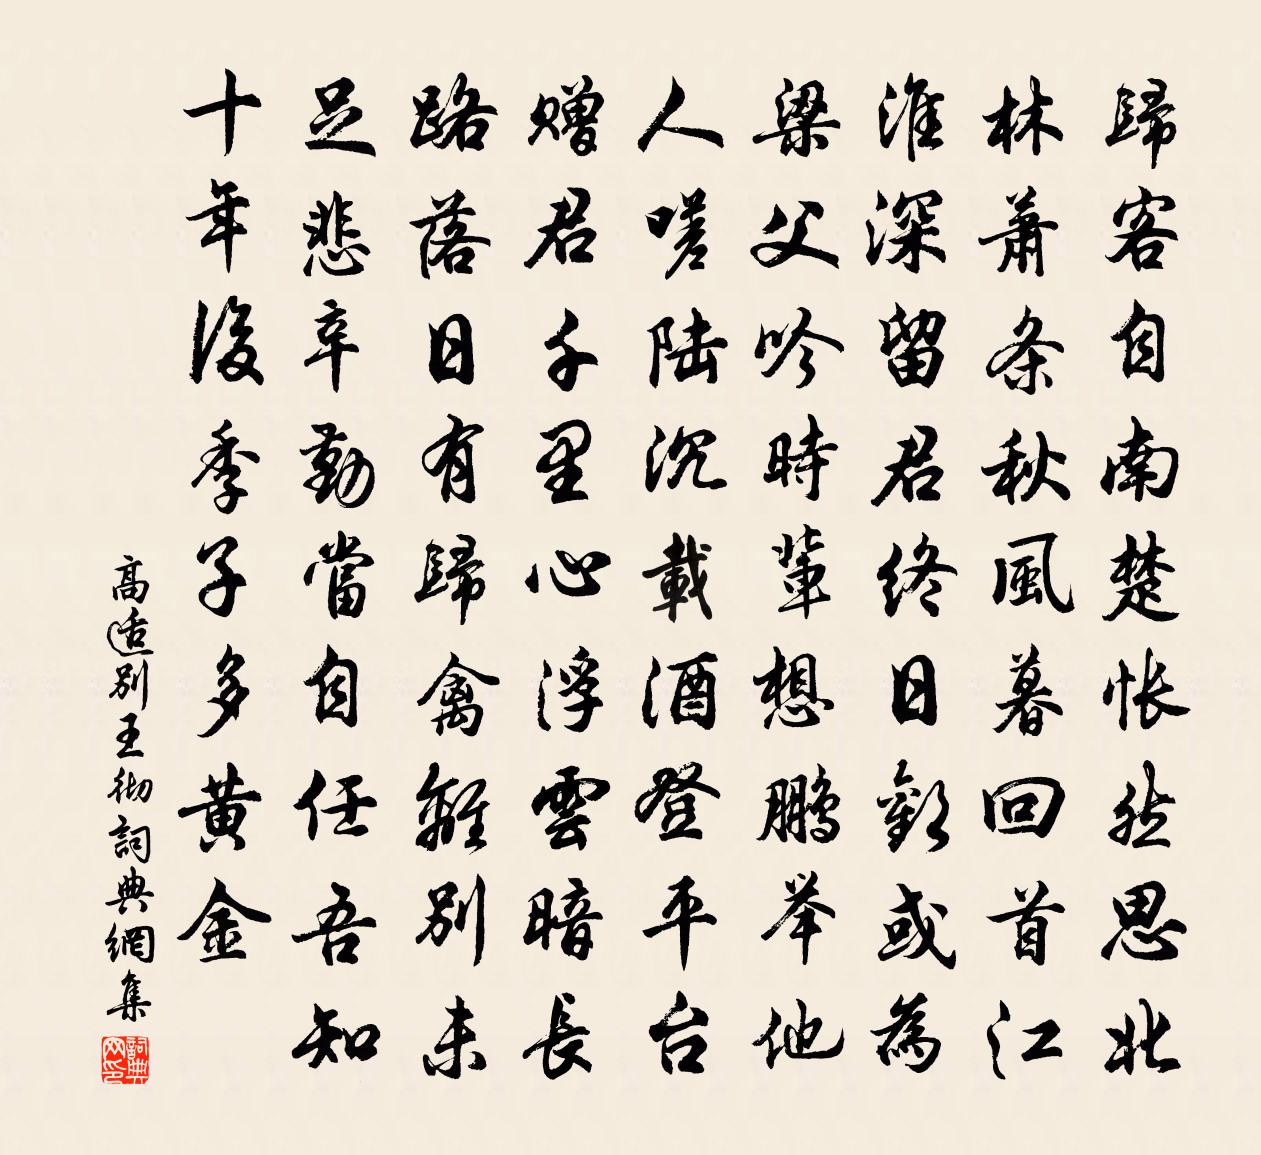 歸客自南楚怅然思北
林蕭条秋風暮回首江
淮深留君终日歡或為
梁父吟時輩想鹏举他
人嗟陆沉載酒登平台
赠君千里心浮雲暗長
路落日有歸禽離別未
足悲辛勤當自任吾知
十年後季子多黄金
高适別王彻詞典網集
詞典网印